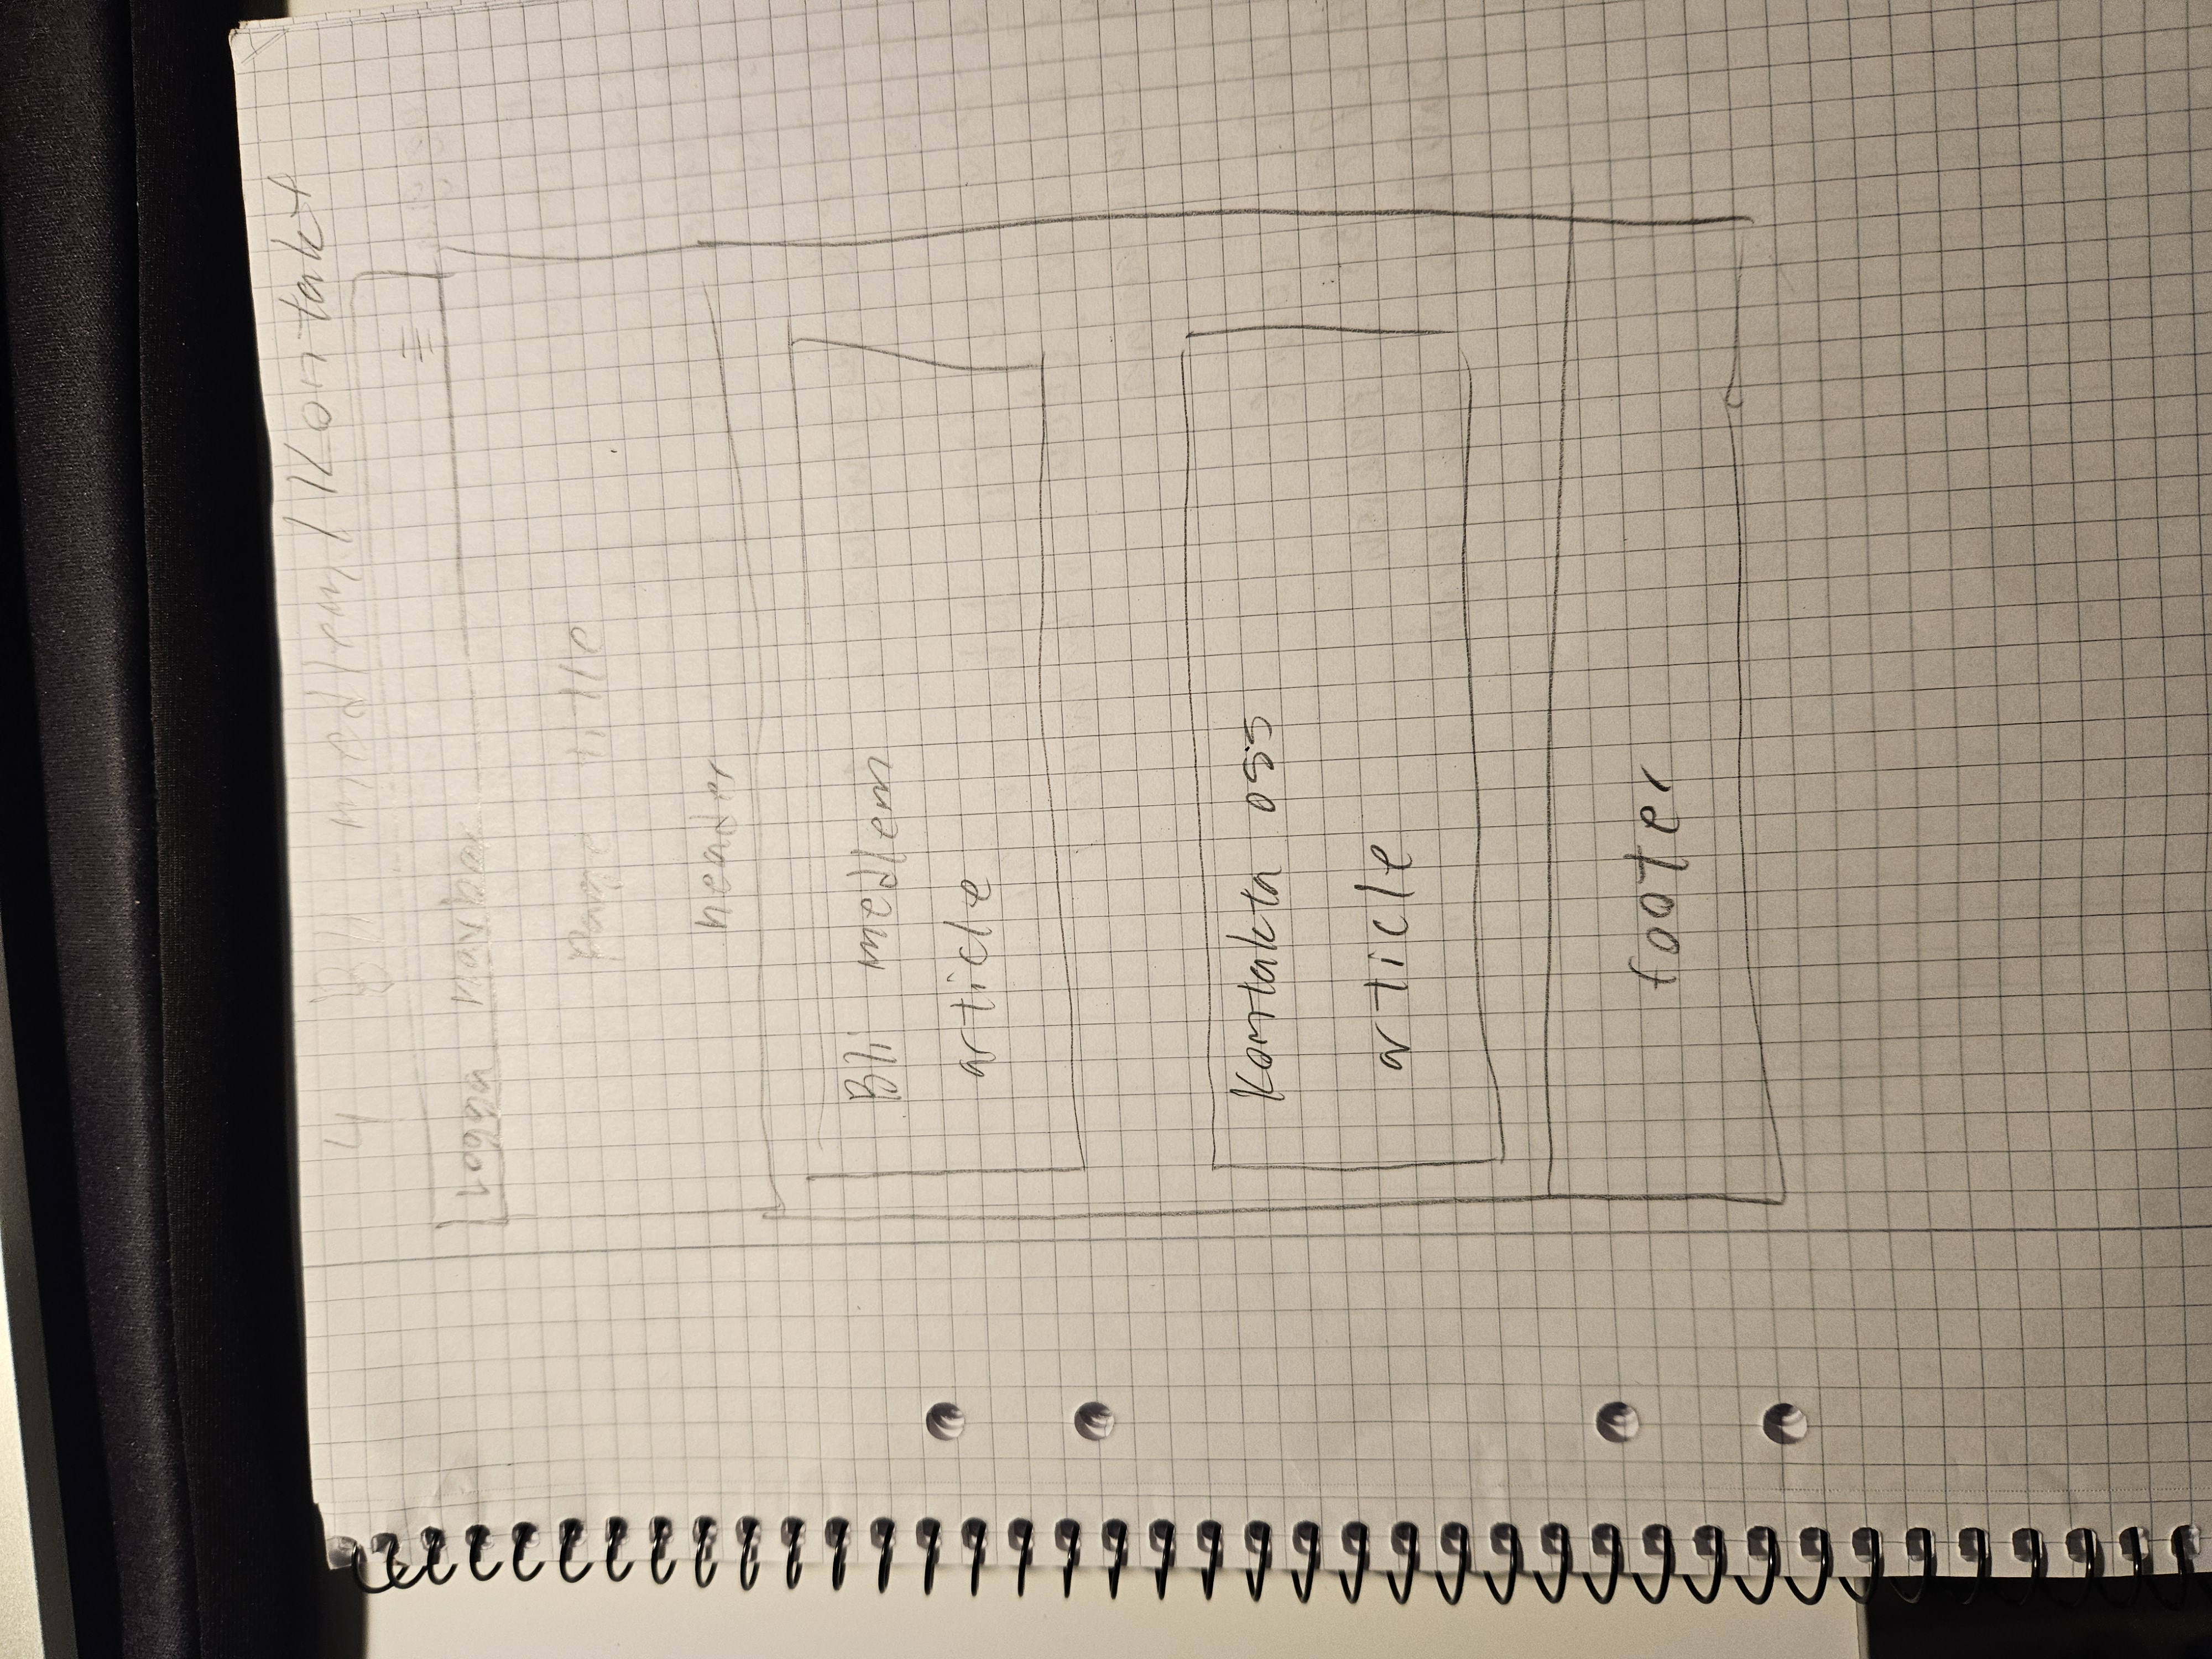 4 Bli medlem/Kontakt
Loggan navbar
Page title
header
Bli medlem
article
Kontakta oss
article
footer